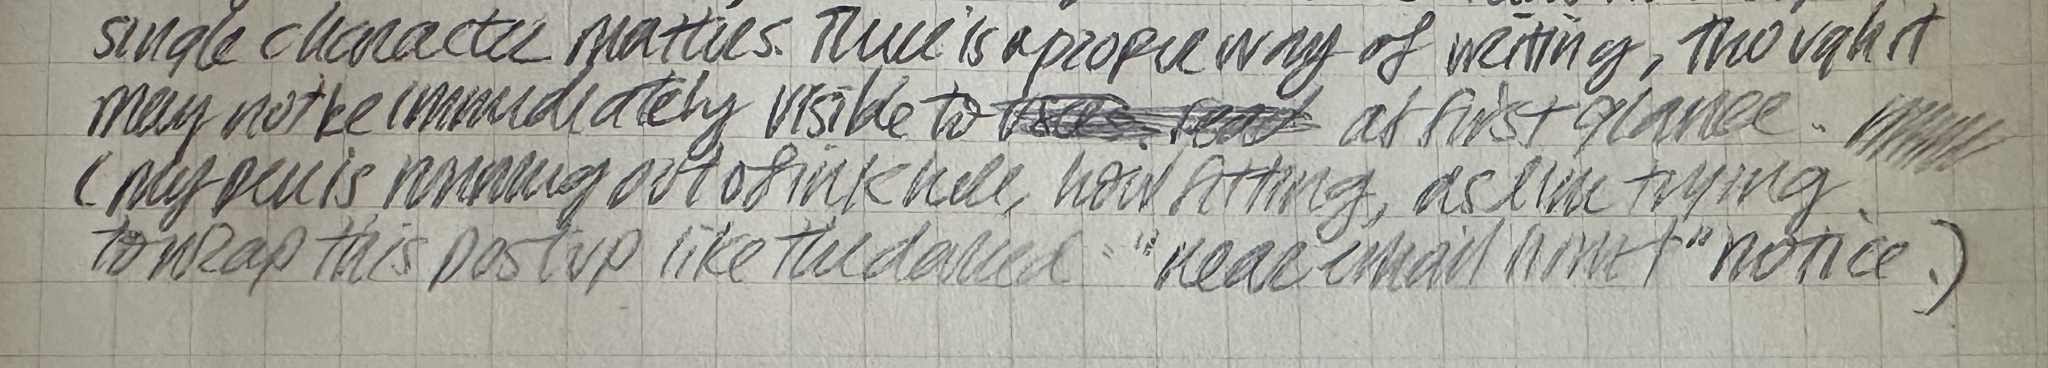 single character matters. There is a proper way of writing, though it
may not be immediately visible to at first glance.
(my pen is running out of ink here, how fitting, as I'm trying
to wrap this post up like the "near email limit" notice.)